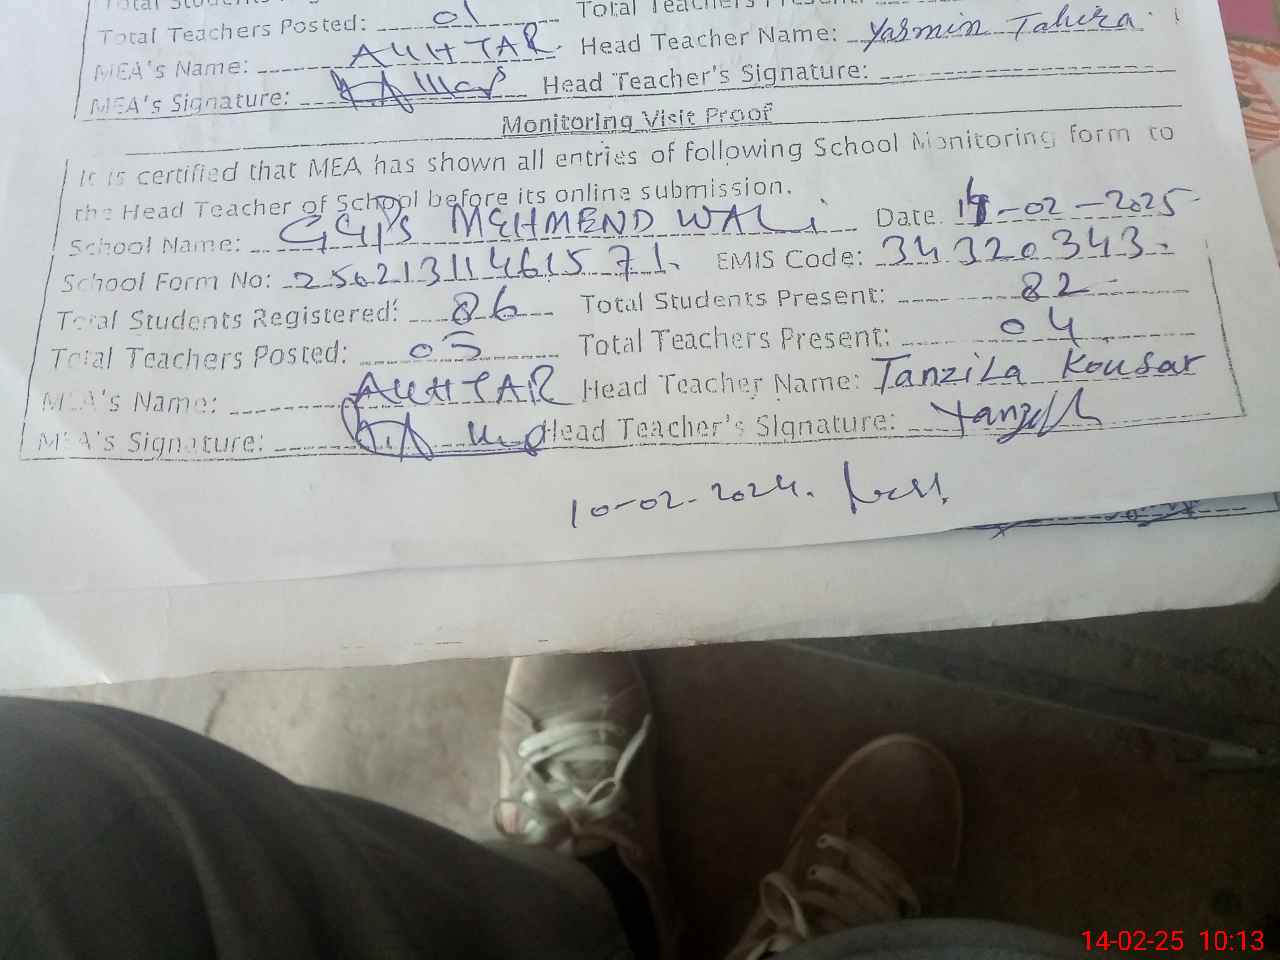 Total Teachers Posted: 01
MEA's Name: AUHTAR Head Teacher Name: Yasmin Tahira
MEA's Signature: Head Teacher's Signature:
Monitoring Visit Proof
It is certified that MEA has shown all entries of following School Monitoring form to
the Head Teacher of School before its online submission.
School Name: GGPS MEHMEND WALi Date. 14-02-2025
School Form No: 25621311461571. EMIS Code: 34320343.
Total Students Registered: 86 Total Students Present: 82
Total Teachers Posted: 05 Total Teachers Present: 04
MEA's Name: AUHTAR Head Teacher Name: Tanzila Kousar
MEA's Signature: Head Teacher's Signature:
10-02-2024.
14-02-25 10:13